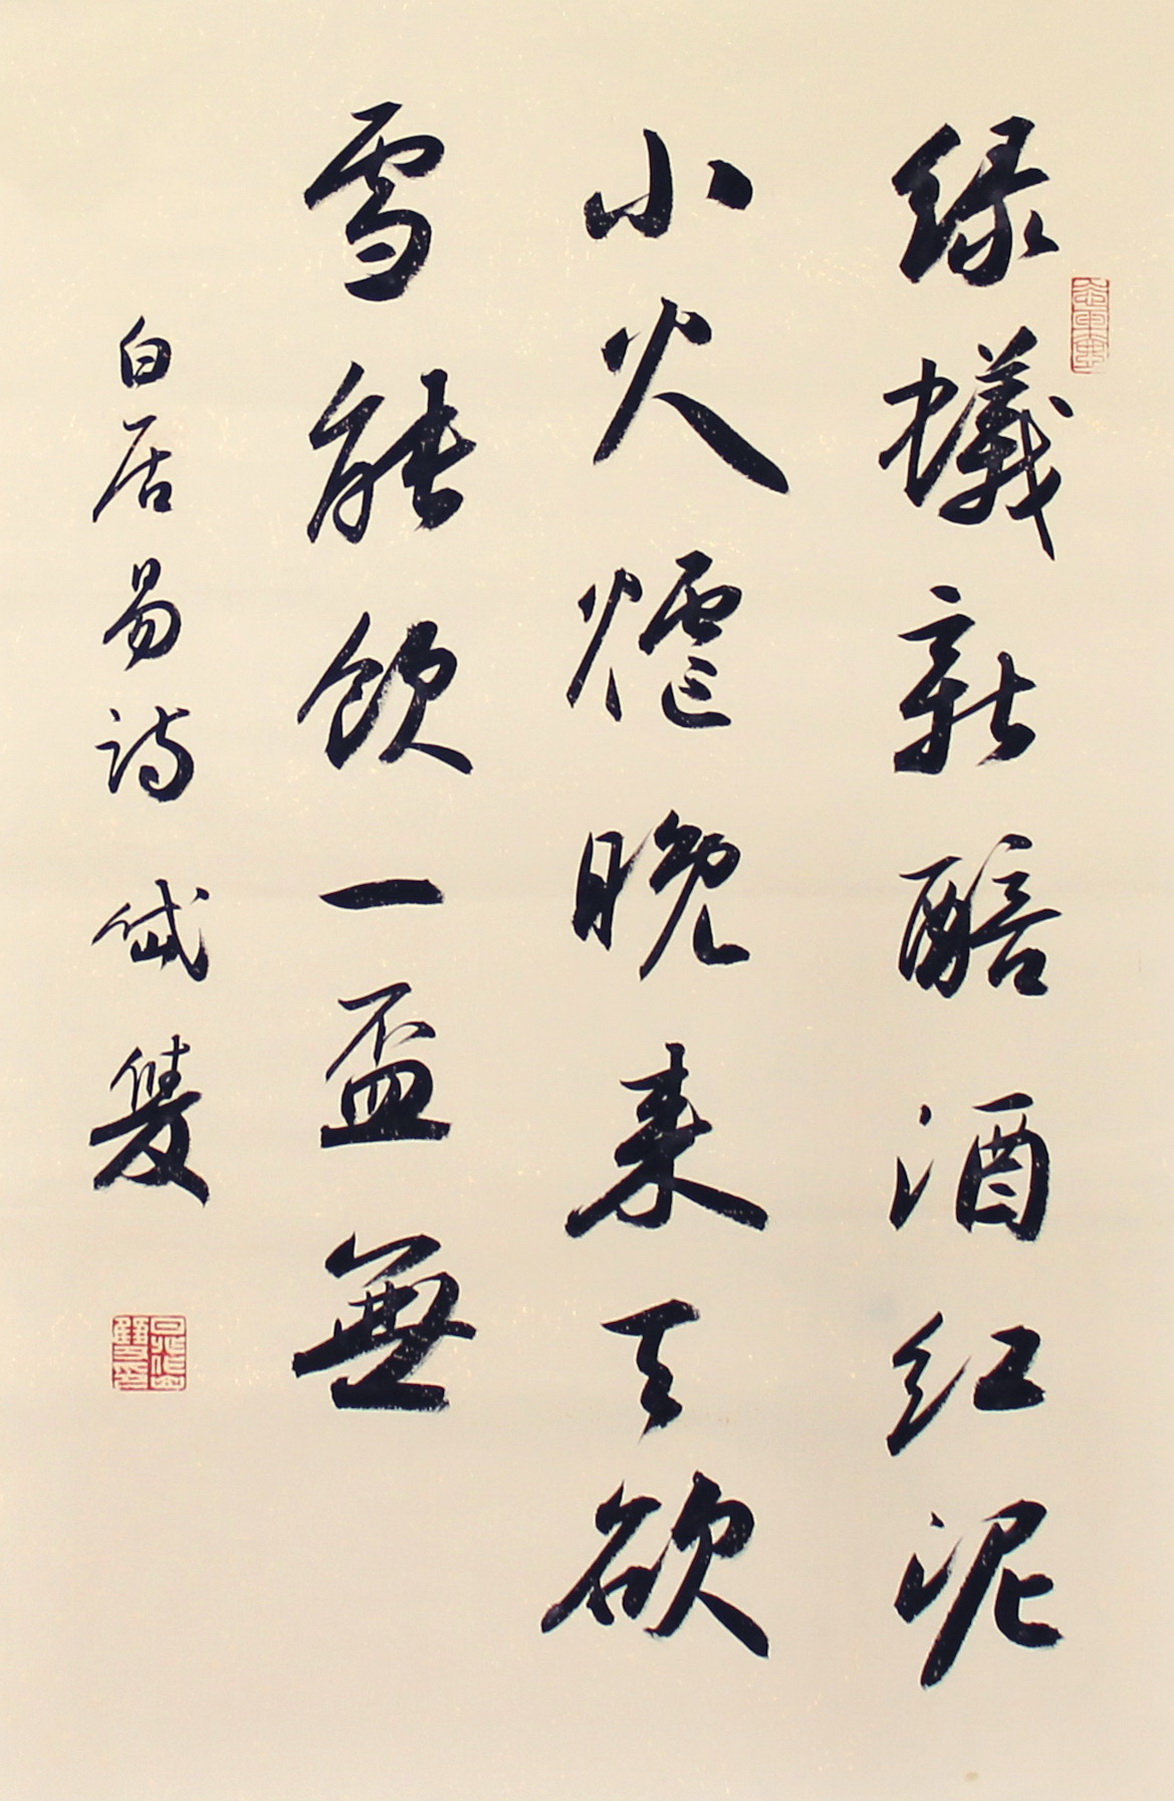 绿蟻新醅酒红泥
小火爐晚来天欲
雪能飲一盃無
白居易詩 岱雙